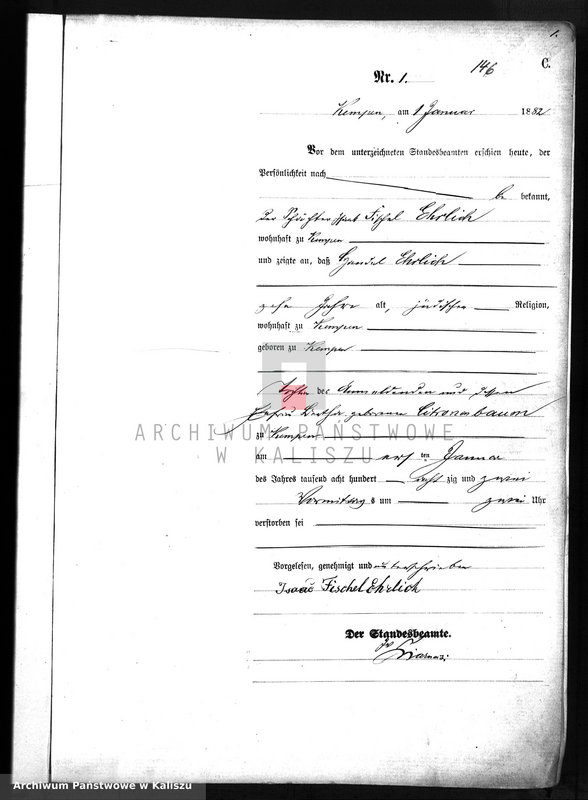 1.
146
C.
Nr. 1.
Kempen, am 1 Januar 1882
Vor dem unterzeichneten Standesbeamten erschien heute, der
Persönlichkeit nach
be kannt,
der Isaac Fischel Ehrlich
wohnhaft zu Kempen
und zeigte an, daß Handel Ehrlich
zehn Jahre alt, jüdischer Religion,
wohnhaft zu Kempen
geboren zu Kempen
Tochter des Anmeldenden und dessen
Ehefrau Bertha geborenen Citronenbaum
zu Kempen
ARCHIWUM PAŃSTWOWE
W KALISZU
am ersten Januar
des Jahres tausend acht hundert acht zig und zwei
Vormittags um zwei Uhr
verstorben sei
Vorgelesen, genehmigt und unterschrieben
Isaac Fischel Ehrlich
Der Standesbeamte.
Archiwum Państwowe w Kaliszu